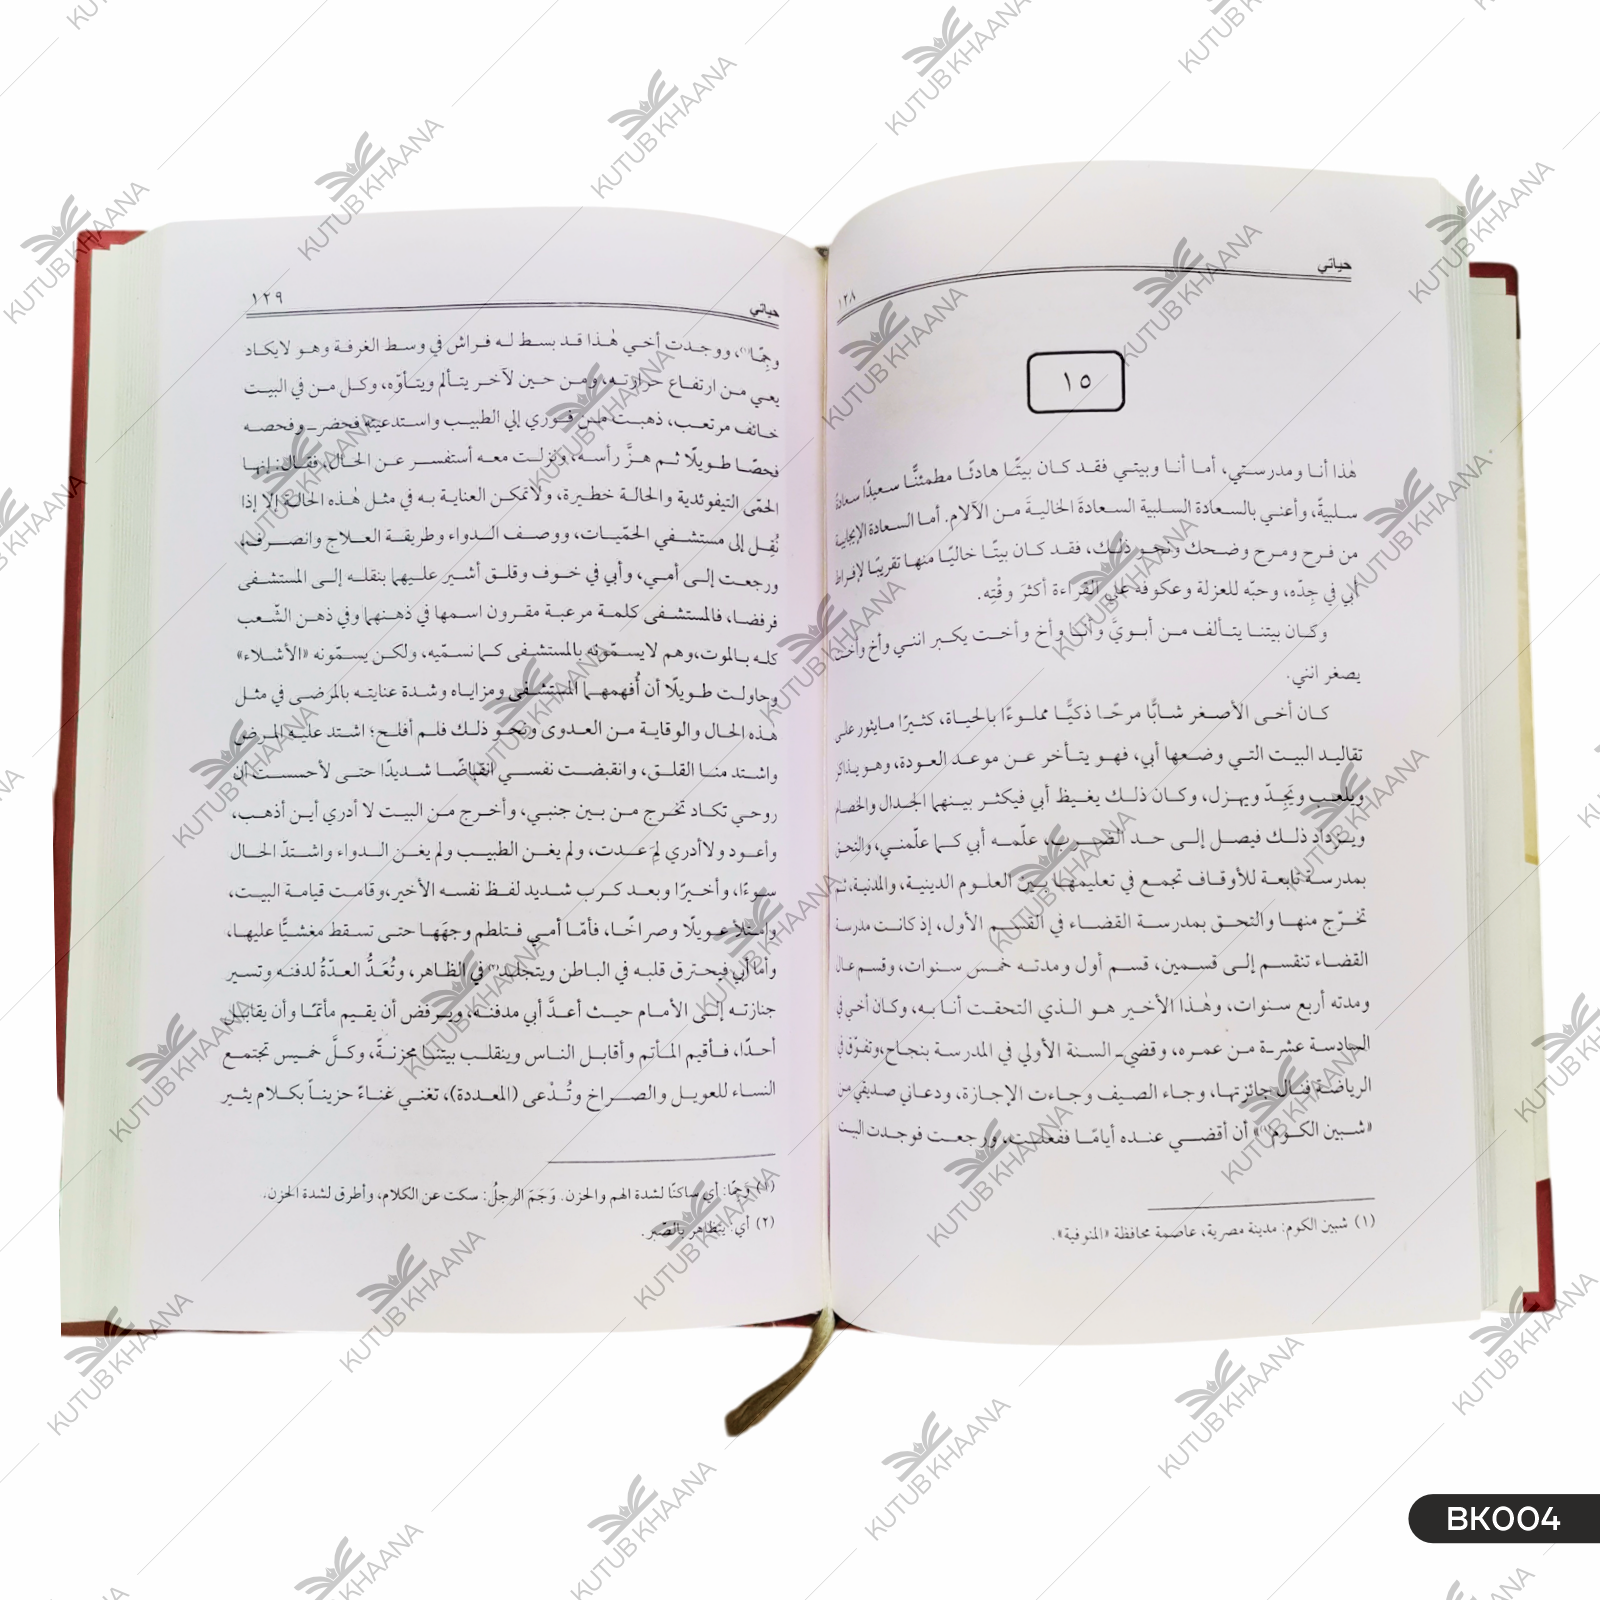 حياتي
١٢٨
١٥
هٰذا أنا ومدرستي، أما أنا وبيتي فقد كان بيتًا هادئًا مطمئنًّا سعيدًا سعادةً
سلبيةً، وأعني بالسعادة السلبية السعادةَ الخاليةَ من الآلام. أما السعادة الإيجابية
من فرح ومرح وضحك ونحو ذلك، فقد كان بيتًا خاليًا منها تقريبًا لإفراط
أبي في جِدّه، وحبّه للعزلة وعكوفه على القراءة أكثرَ وقْتِه.
وكان بيتنا يتألف من أبويَّ وأنا وأخ وأخت يكبر انني وأخ وأخت
يصغر انني.
كان أخى الأصغر شابًّا مرحًا ذكيًّا مملوءًا بالحياة، كثيرًا مايثور على
تقاليد البيت التي وضعها أبي، فهو يتأخر عن موعد العودة، وهو يذاكر
ويلعب ويَجِدّ ويهزل، وكان ذلك يغيظ أبي فيكثر بينهما الجدال والخصام
ويزداد ذلك فيصل إلى حد الضرب، علّمه أبي كما علّمني، والتحق
بمدرسة تابعة للأوقاف تجمع في تعليمها بين العلوم الدينية، والمدنية، ثم
تخرّج منها والتحق بمدرسة القضاء في القسم الأول، إذ كانت مدرسة
القضاء تنقسم إلى قسمين، قسم أول ومدته خمس سنوات، وقسم عال
ومدته أربع سنوات، وهٰذا الأخير هو الذي التحقت أنا به، وكان أخي في
السادسة عشرة من عمره، وقضى السنة الأولي في المدرسة بنجاح، وتفوّق في
الرياضة فنال جائزتها، وجاء الصيف وجاءت الإجازة، ودعاني صديقي من
«شبين الكوم»(١) أن أقضي عنده أيامًا ففعلت، ورجعت فوجدت البيت
(١) شبين الكوم: مدينة مصرية، عاصمة محافظة «المنوفية».
حياتي
١٢٩
وجِمًا(١)، ووجدت أخي هٰذا قد بسط له فراش في وسط الغرفة وهو لايكاد
يعي من ارتفاع حرارته، ومن حين لآخر يتألم ويتأوّه، وكل من في البيت
خائف مرتعب، ذهبت من فوري إلي الطبيب واستدعيته فحضر وفحصه
فحصًا طويلًا ثم هزَّ رأسه، ونزلت معه أستفسر عن الحال، فقال: إنها
الحمّى التيفوئدية والحالة خطيرة، ولاتمكن العناية به في مثل هٰذه الحالة إلا إذا
نُقِل إلى مستشفي الحمّيات، ووصف الدواء وطريقة العلاج وانصرف،
ورجعت إلى أمي، وأبي في خوف وقلق أشير عليهما بنقله إلى المستشفى
فرفضا، فالمستشفى كلمة مرعبة مقرون اسمها في ذهنهما وفي ذهن الشّعب
كله بالموت،وهم لايسمّونه بالمستشفى كما نسمّيه، ولكن يسمّونه «الأشلاء»
وحاولت طويلًا أن أُفهمهما المستشفى ومزاياه وشدة عنايته بالمرضى في مثل
هذه الحال والوقاية من العدوى ونحو ذلك فلم أفلح؛ اشتد عليه المرض
واشتد منا القلق، وانقبضت نفسي انقباضًا شديدًا حتى لأحسست أن
روحي تكاد تخرج من بين جنبي، وأخرج من البيت لا أدري أين أذهب،
وأعود ولاأدري لِمَ عدت، ولم يغن الطبيب ولم يغن الدواء واشتدّ الحال
سوءًا، وأخيرًا وبعد كرب شديد لفظ نفسه الأخير،وقامت قيامة البيت،
وامتلأ عويلًا وصراخًا، فأمّا أمي فتلطم وجهَهَا حتى تسقط مغشيًّا عليها،
وأما أبي فيحترق قلبه في الباطن ويتجلد(٢) في الظاهر، وتُعَدُّ العدّةُ لدفنه وتسير
جنازته إلى الأمام حيث أعدَّ أبي مدفنه، ويرفض أن يقيم مأتمًا وأن يقابل
أحدًا، فأقيم المأتم وأقابل الناس وينقلب بيتنا محزنةً، وكلَّ خميس تجتمع
النساء للعويل والصراخ وتُدْعى (المعددة)، تغني غناءً حزيناً بكلام يثير
(١) وَجِمًا: أي ساكنًا لشدة الهم والحزن. وَجَمَ الرجلُ: سكت عن الكلام، وأطرق لشدة الحزن.
(٢) أي: يتظاهر بالصّبر.
KUTUB KHAANA
BK004